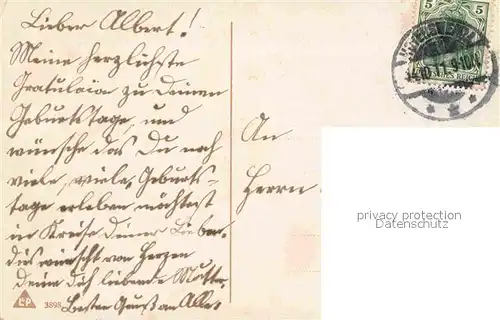 Lieber Albert!
Meine herzlichste
Gratulaion zu Deinem
Geburtstage, und
wünsche das Du noch
viele, viele, Geburts-
tage erleben möchtest
in Kreise deiner Lieben.
dies wünscht von Herzen
deine dich liebende Mutter
Besten Gruß an Alle.
3898
An
Herrn
privacy protection
Datenschutz
5 5
REICH